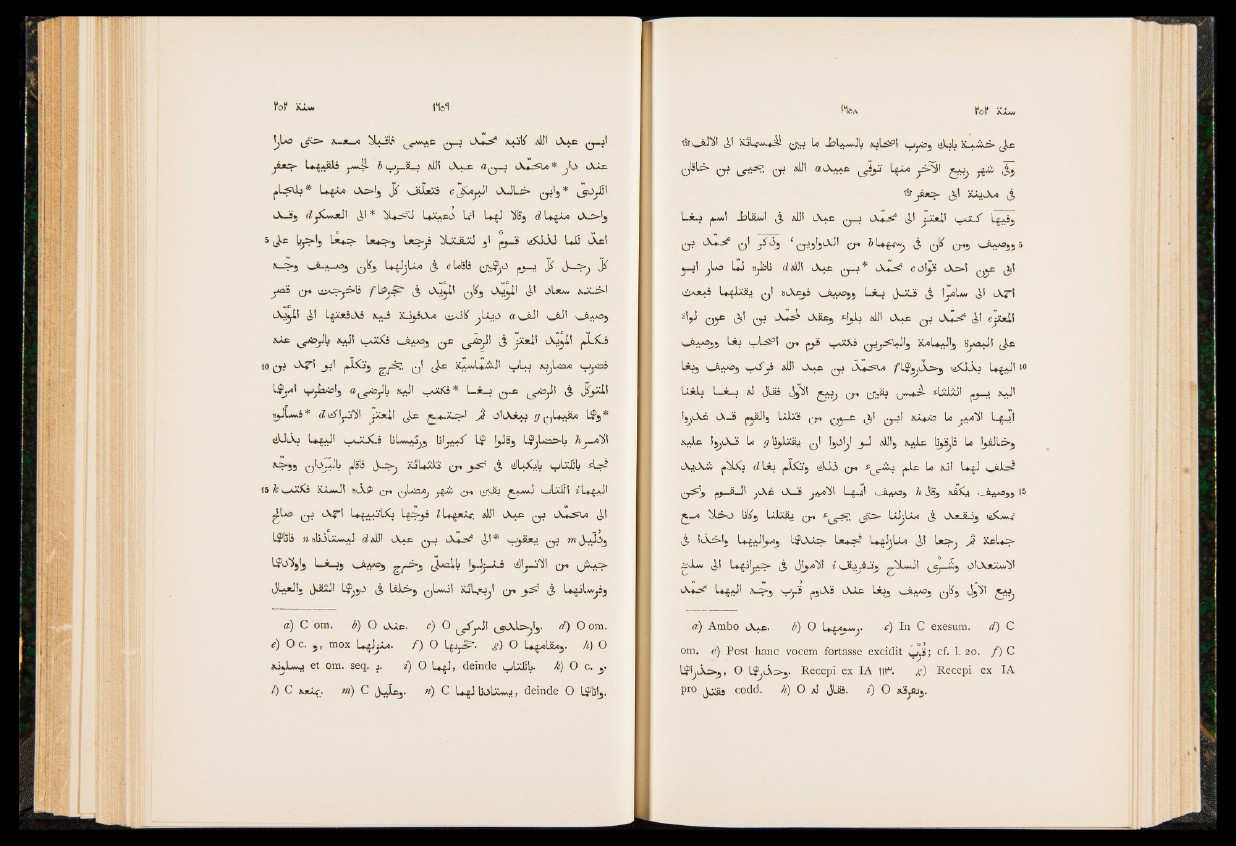 سنة ٢٥٢ ١٦٥٨
على خشبة بابك وضرب اصحابه بالسياط ما بين الخمسمائة الى الالف ۞
وفى شهر ربيع الآخر منها توفى عبيد a الله بن يحيى بن خاقان
فى مدينة ابى جعفر ۞
وفيها كتب المعتز الى محمد بن عبد الله فى اسقاط اسم بغا
5 ووصيف ومن كان فى رسمهما b من الدواوين، وذكر ان محمد بن
ابى عون احد قواد c محمد *بن عبد الله d ناظره لما صار ابو
احمد الى سامرا فى قتل بغا ووصيف فوعده ان يقتلهما فبعث
المعتز e الى محمد بن عبد الله بلواء وعقد لمحمد بن ابى عون لواء
على البصرة واليمامة والبحرين فكتب قوم من اصحاب بغا ووصيف
10 اليهما بذلك وحذروهما f محمد بن عبد الله فركب وصيف وبغا
اليه يوم الثلثاء لخمس بقين من ربيع الاول فقال له بغا بلغنا
ايها الامير ما ضمنه ابن ابى عون من قتلنا والقوم قد غدروا
وخالفوا ما فارقونا عليه والله لو ارادوا ان يقتلونا g ما قدروا عليه
فحلف لهما انه ما علم بشىء من ذلك وتكلم بغا d بكلام شديد
15 ووصيف يكفه وقال h وصيف ايها الامير قد غدر القوم ونحن
نمسك ونقعد فى منازلنا حتى يجىء من يقتلنا وكانا دخلا مع
جماعة ثم رجعا الى منازلهما فجمعا جندهما ومواليهما واخذا فى
الاستعداد وشرى السلاح وتفريق i الاموال فى جيرانهما الى سلخ
ربيع الاول وكان وصيف وبغا عند قدوم قرب وجه اليهما محمد
a) Ambo عبد. b) O رسومهما. c) In C exesum. d) C
om. e) Post hanc vocem fortasse excidit قرب; cf. l. 20. f) C
وحذراهما, O وحذرها. Recepi ex IA ١١٣. g) Recepi ex IA
pro فقتل codd. h) O فقال له. i) O وتفرقه.
سنة ٢٥٢ ١٦٥٩
ابن عبد الله كاتبه محمد بن عيسى فاقبلا معه حتى صارا
عند دار *محمد بن a عبد الله بقرب b الجسر فلقيهما جعفر
الكردى *وابن خالد البرمكى c فتعلق كل واحد منهما *بلجام
واحد منهما d وقالا لهما انما دعيتما لتحملا *الى العسكر d وقد
5 اعد لكما لذلك قوم او لتقتلا فرجعا وجمعا جمعا واجريا على
كل رجل كل يوم درهمين فاقاما e فى منازلهما وكان وصيف وجه
اخته سعاد الى المؤيد وكان المؤيد فى حجرها f فاخرجت من قصر
وصيف الف الف a دينار كانت مدفونة فيه فدفعتها الى المؤيد
فكلم المؤيد المعتز فى الرضى عن وصيف فكتب اليه بالرضى عنه
10 فضرب مضاربه بباب الشماسية على ان يخرج وتكلم ابو احمد بن
المتوكل فى الرضى عن بغا *فكتب اليه بالرضى a واضطرب امرهما
*وهما مقيمان g ببغداد ثم اجتمع على المعتز الاتراك d *فسألوه
الامر h باحضارهما وقالوا هما كبيرانا ورئيسانا فكتب اليهما بذلك
فجاء بالكتاب بايكباك فى نحو من ثلثمائة رجل فاقام بالبردان ووجه
15 اليهما i الكتاب لسبع بقين من شهر رمضان من هذه السنة فكتب k
الى محمد بن عبد الله يمنعهما l فوجها بكاتبيهما احمد بن صالح
ودليل m بن يعقوب *الى محمد بن عبد الله d ليستأذناه n فاتاهما
جيش من الاتراك فنزلوا بالمصلى وخرج وصيف وبغا واولادهما
وفرسانهما فى نحو من اربعمائة انسان وخلفا فى دورهما الثقل والعيال
a) C om. b) O عند. c) O d) O om.
e) O c. و, mox منزلهما. f) O g) O ومقامهما. h) O
et om. seq. ب. i) O لهما, deinde بالكتاب. k) O c. و.
l) C يمنعه. m) C وعليل. n) C, deinde O واتاهما.